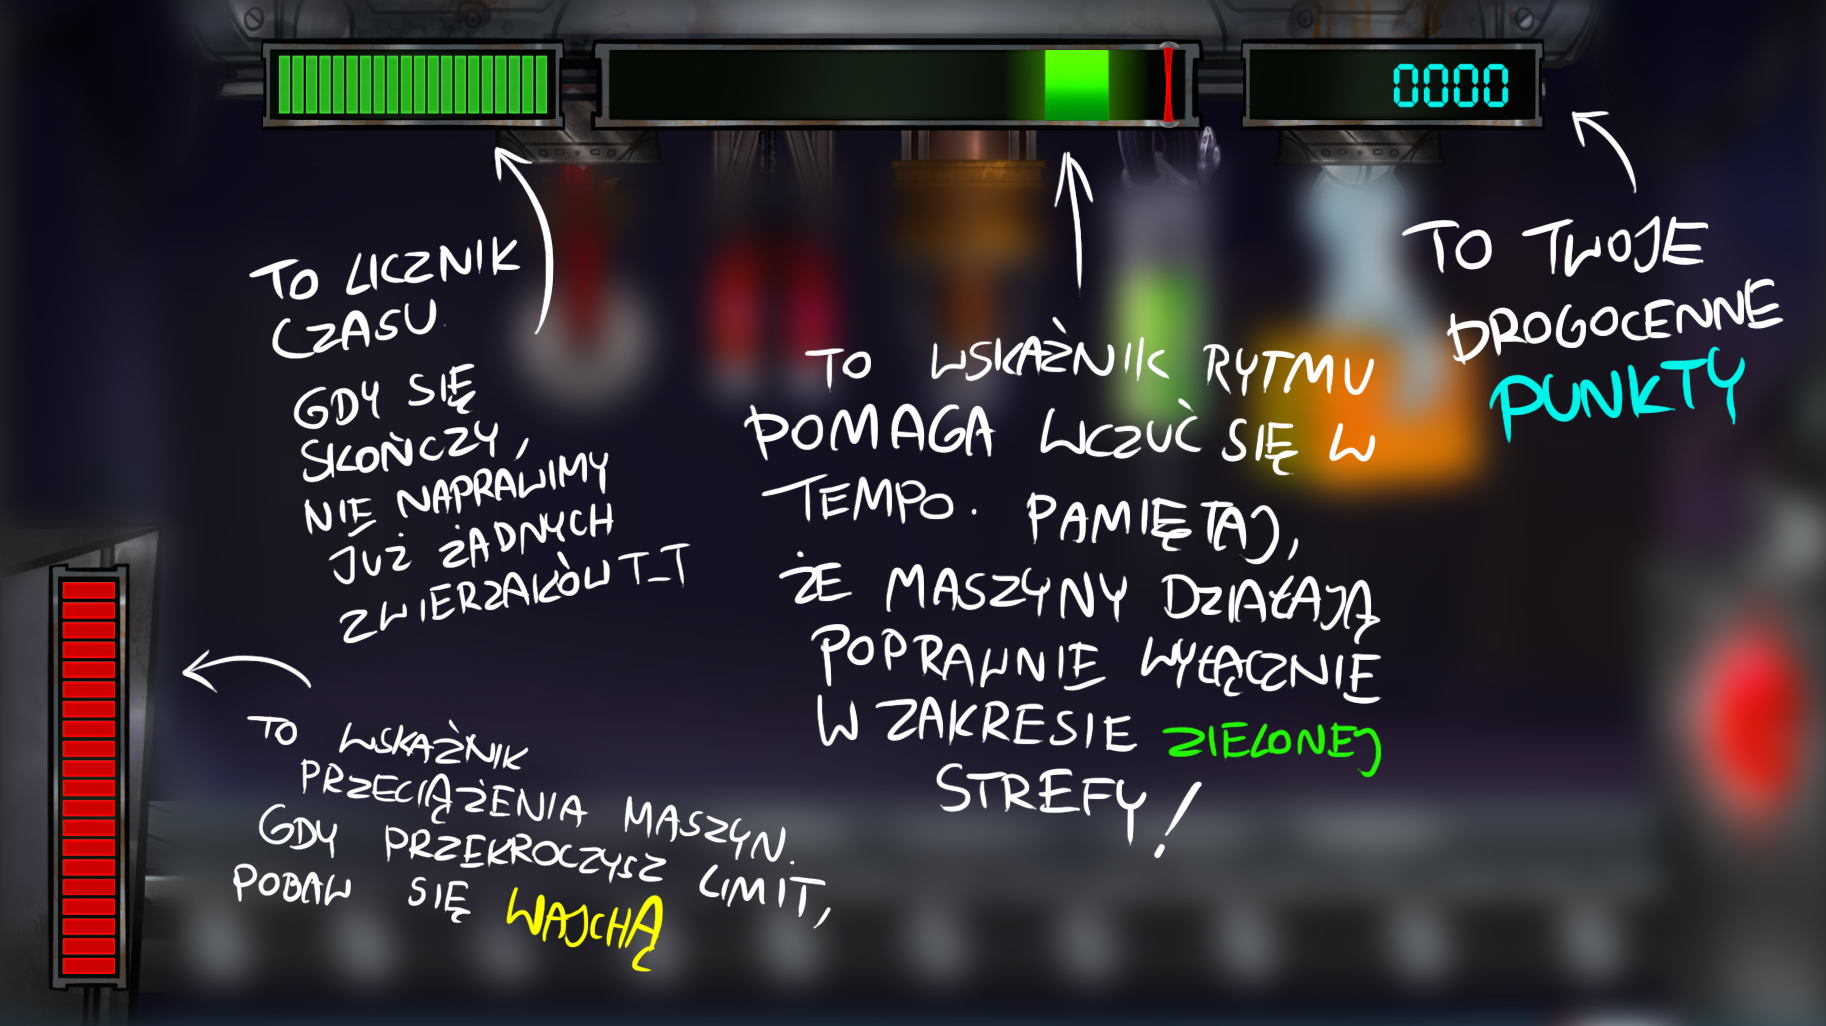 0000
TO LICZNIK
CZASU.
GDY SIĘ
SKOŃCZY,
NIE NAPRAWIMY
JUŻ ŻADNYCH
ZWIERZAKÓW T_T
TO WSKAŹNIK RYTMU
POMAGA WCZUĆ SIĘ W
TEMPO. PAMIĘTAJ,
ŻE MASZYNY DZIAŁAJĄ
POPRAWNIE WYŁĄCZNIE
W ZAKRESIE ZIELONEJ
STREFY!
TO TWOJE
DROGOCENNE
PUNKTY
TO WSKAŹNIK
PRZECIĄŻENIA MASZYN.
GDY PRZEKROCZYSZ LIMIT,
POBAW SIĘ WAJCHĄ